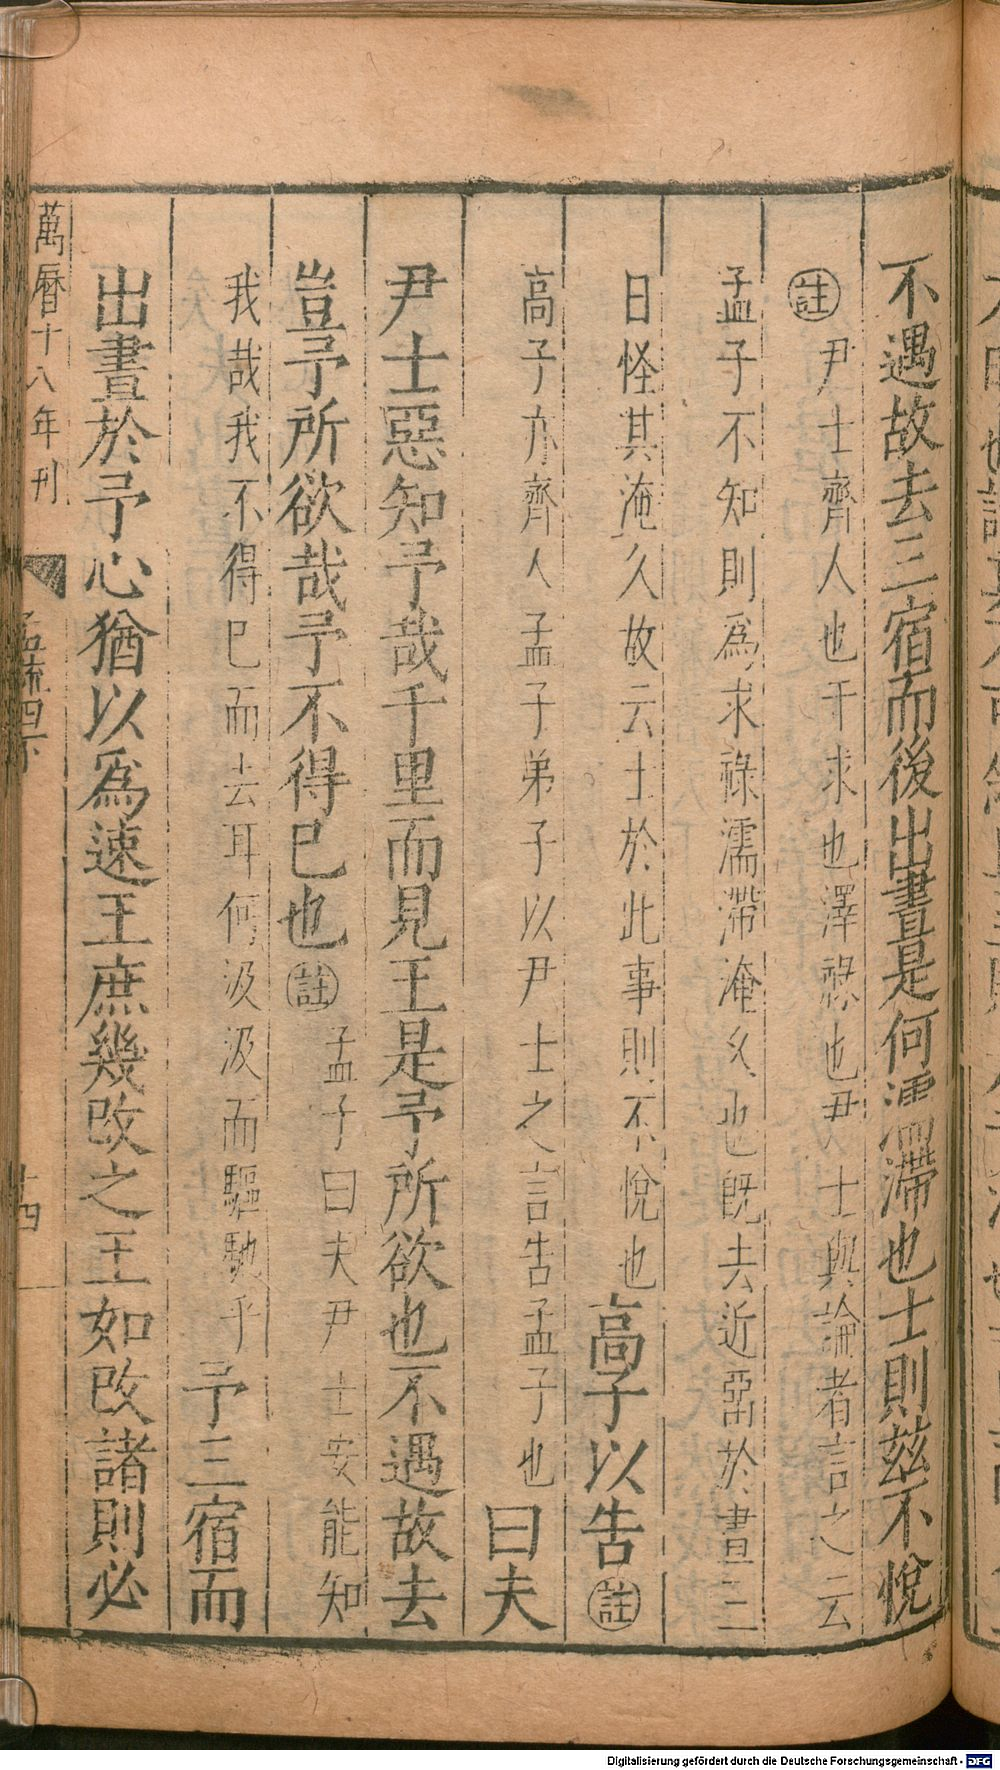 不遇故去三宿而後出晝是何濡滯也士則茲不悅
註尹士齊人也干求也澤祿也尹士與論者言之云
孟子不知則爲求祿濡滯淹久也既去近畱於晝三
日怪其淹久故云士於此事則不悅也高子以告註
高子亦齊人孟子弟子以尹士之言告孟子也曰夫
尹士惡知予哉千里而見王是予所欲也不遇故去
豈予所欲哉予不得已也註孟子曰夫尹士安能知
我哉我不得已而去耳何汲汲而驅馳乎予三宿而
出晝於予心猶以爲速王庶幾改之王如改諸則必
萬曆十八年刊
孟疏四下
十四
Digitalisierung gefördert durch die Deutsche Forschungsgemeinschaft - DFG